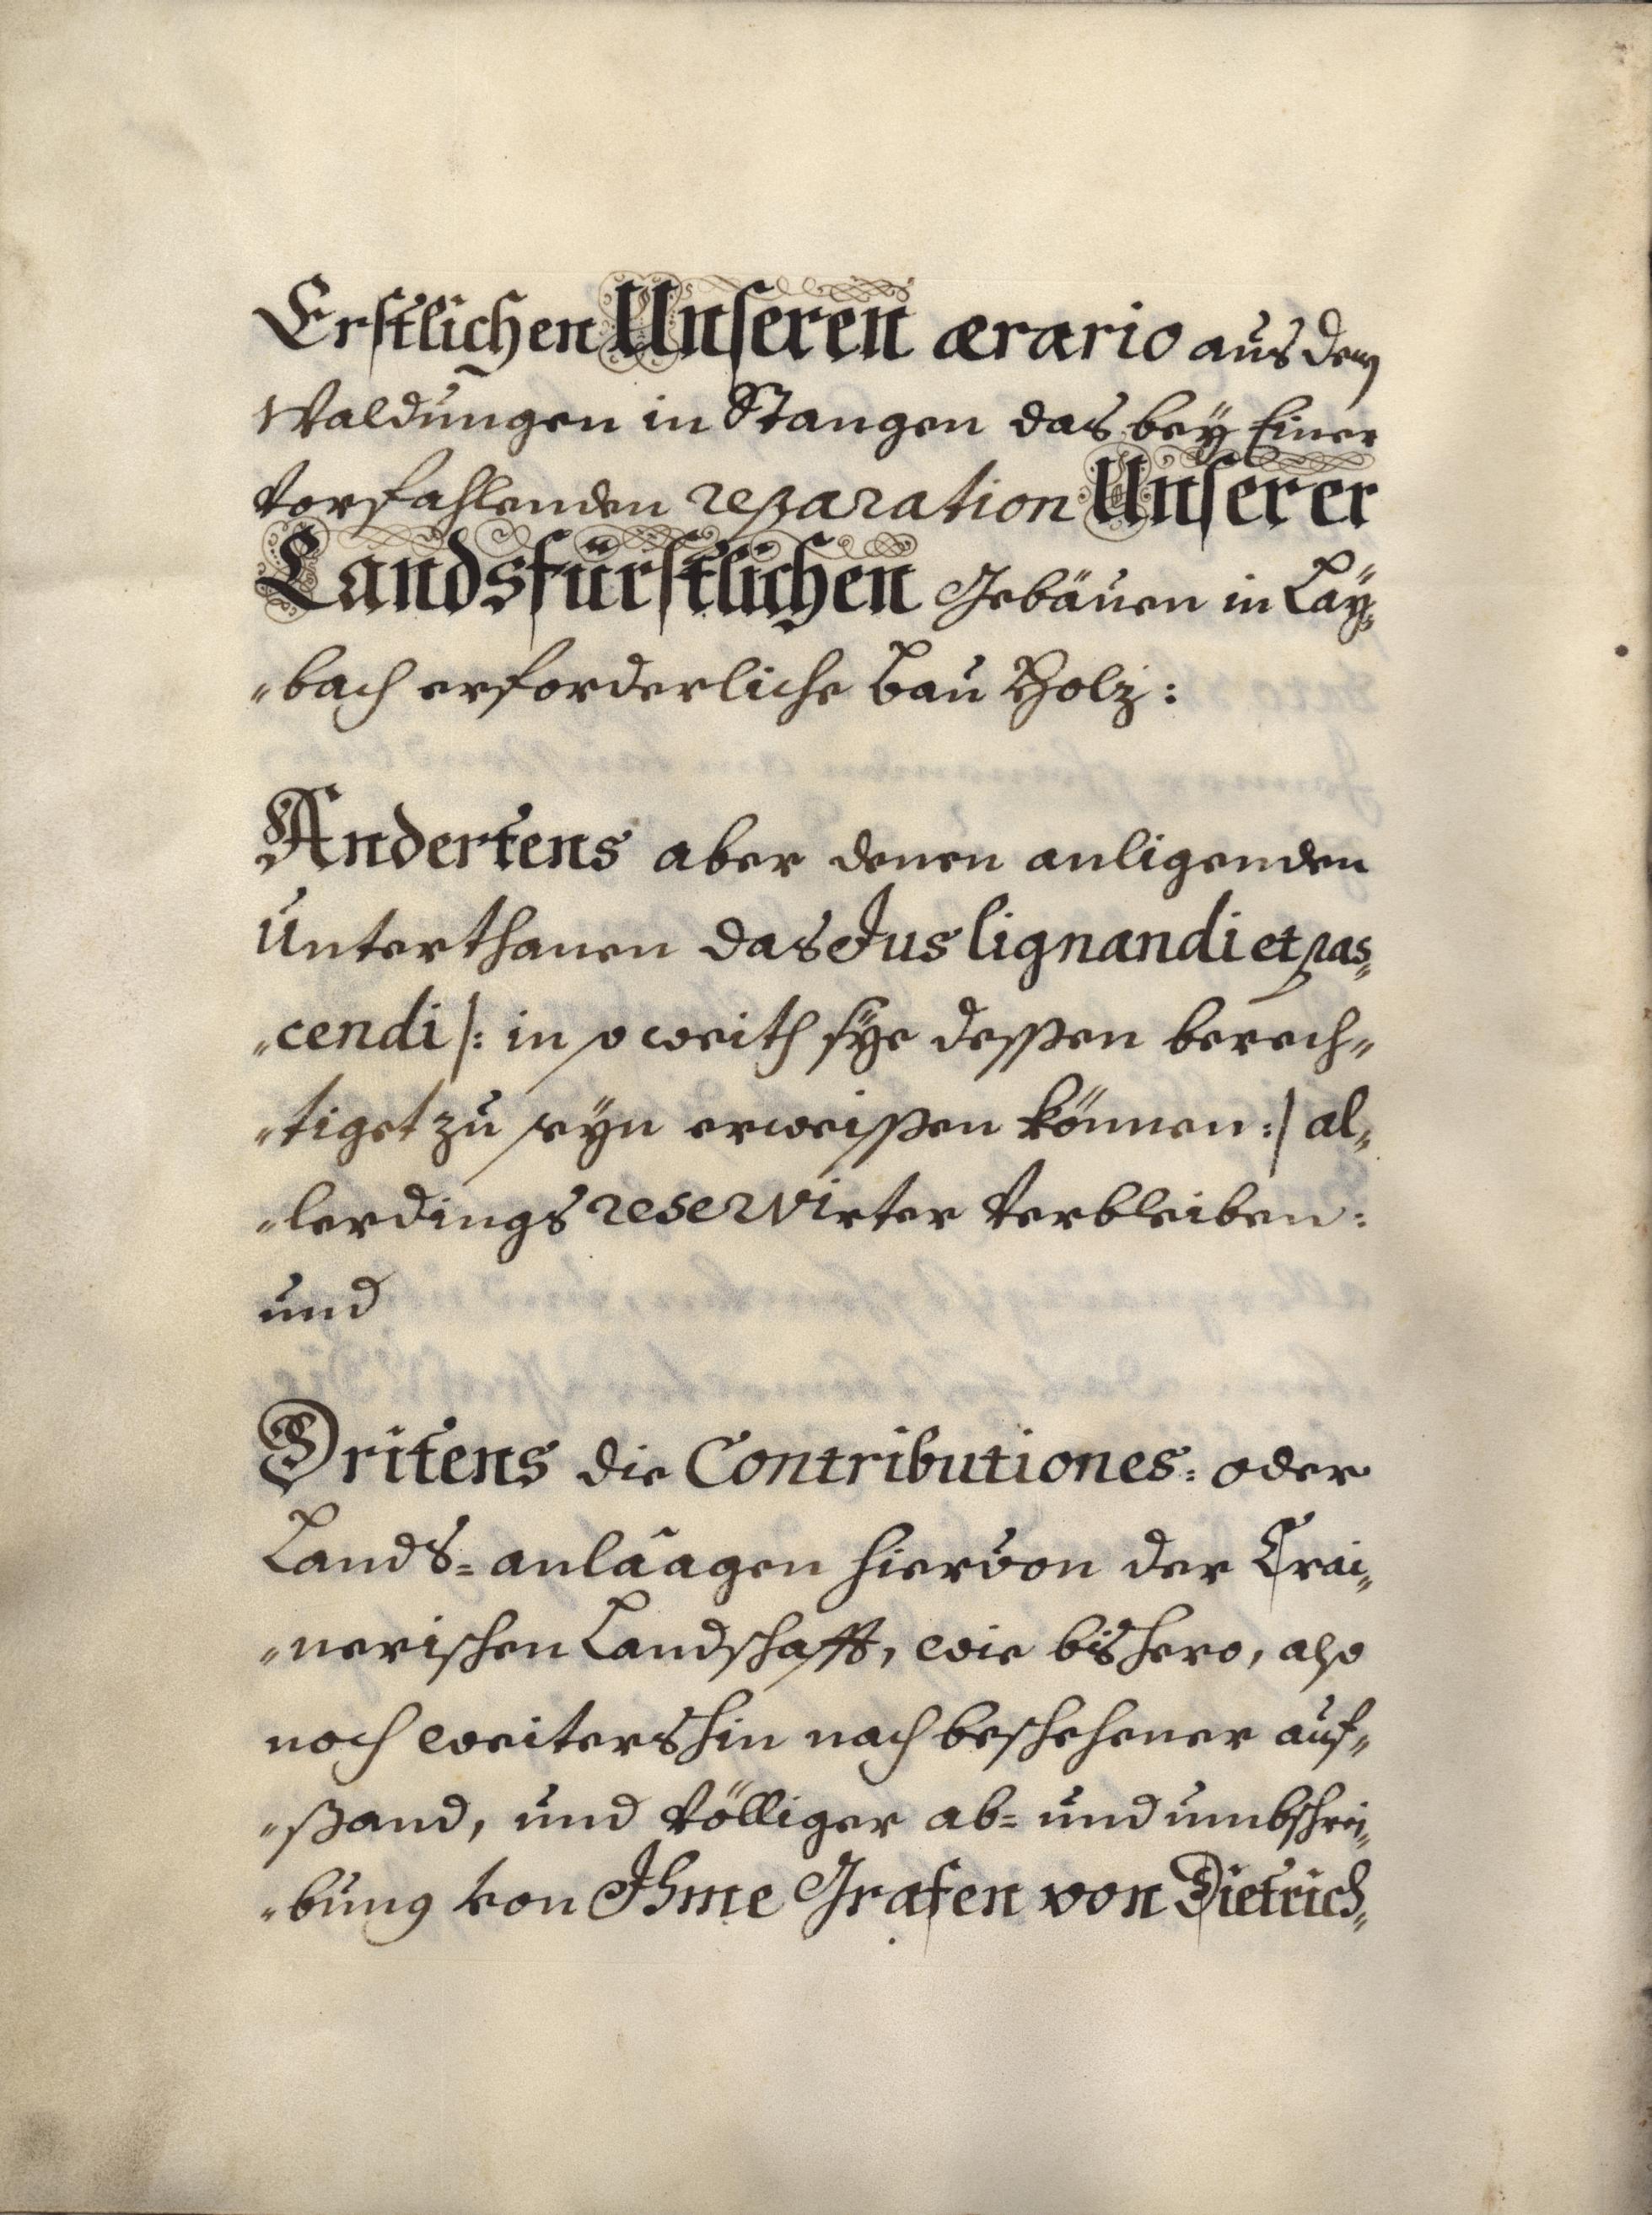 Erstlichen Unseren ærario aus den
Waldungen in Stangen das bey Einer
Vorfahlenden reparation Unserer
Landsfürstlichen Gebäuen in Laÿ„
„bach erforderliche Bau Holz:
Andertens aber denen anligenden
Unterthanen das Jus lignandi et pas„
„cendi /: in so weith sÿe dessen berech„
„tiget zu seÿn erweissen können :/ al„
„lerdings reservirter Verbleiben:
und
Dritens die Contributiones: oder
Lands=anlaagen hiervon der Crai„
„nerischen Landschafft, wie bishero, also
noch weitershin nach beschehener auf„
„ssand, und Völliger ab= und umbschrei„
„bung von Ihme Grafen von Dietrich„